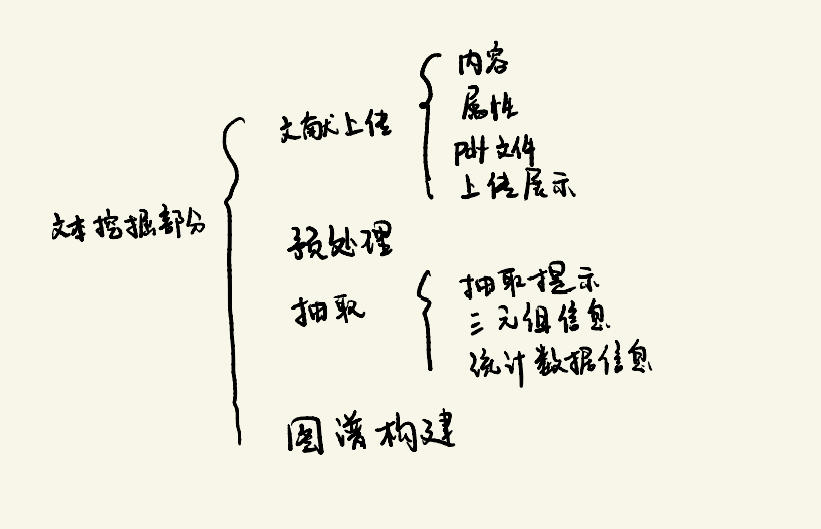 文本挖掘部分
文献上传
内容
属性
pdf文件
上传展示
预处理
抽取
抽取提示
三元组信息
统计数据信息
图谱构建